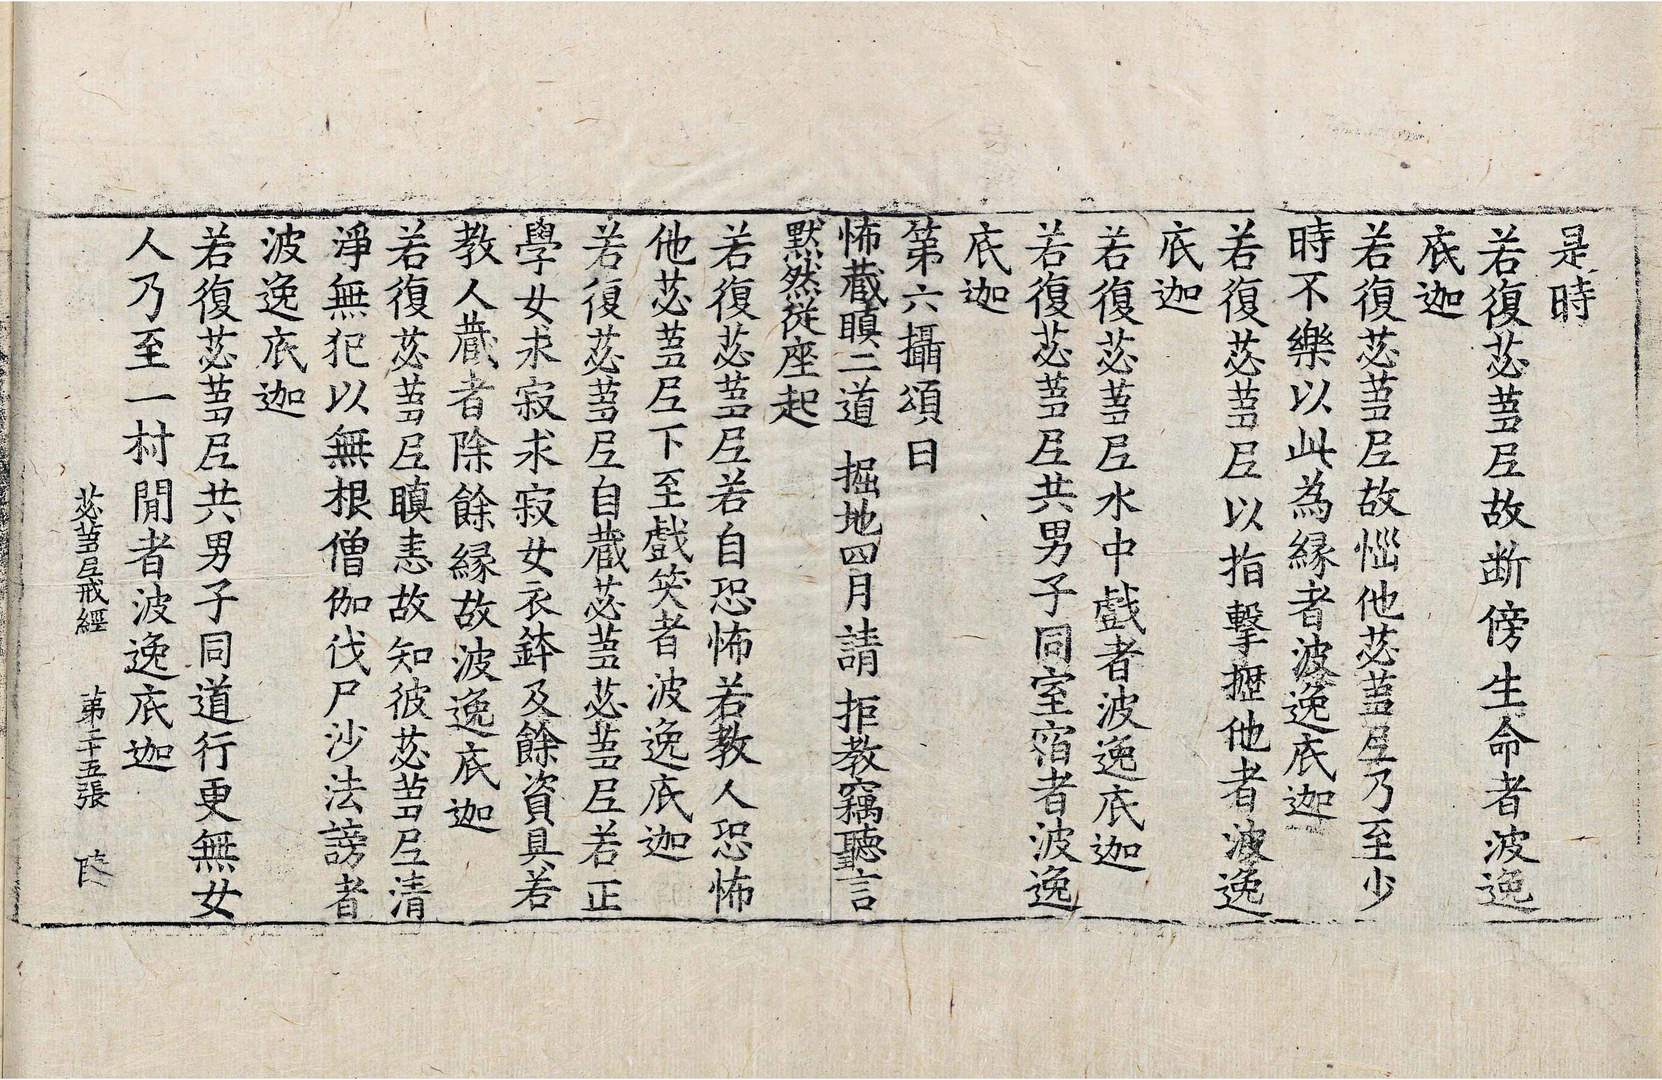 是時
若復苾蒭尼故断傍生命者波逸
底迦
若復苾蒭尼故惱他苾蒭尼乃至少
時不樂以此為縁者波逸底迦
若復苾蒭尼以指擊攊他者波逸
底迦
若復苾蒭尼水中戲者波逸底迦
若復苾蒭尼共男子同室宿者波逸
底迦
第六攝頌曰
怖藏瞋二道　掘地四月請　拒教竊聽言
默然從座起
若復苾蒭尼若自恐怖若教人恐怖
他苾蒭尼下至戲笑者波逸底迦
若復苾蒭尼自藏苾蒭苾蒭尼若正
學女求寂求寂女衣鉢及餘資具若
教人藏者除餘縁故波逸底迦
若復苾蒭尼瞋恚故知彼苾蒭尼清
淨無犯以無根僧伽伐尸沙法謗者
波逸底迦
若復苾蒭尼共男子同道行更無女
人乃至一村間者波逸底迦
苾蒭尼戒經　第二十五張